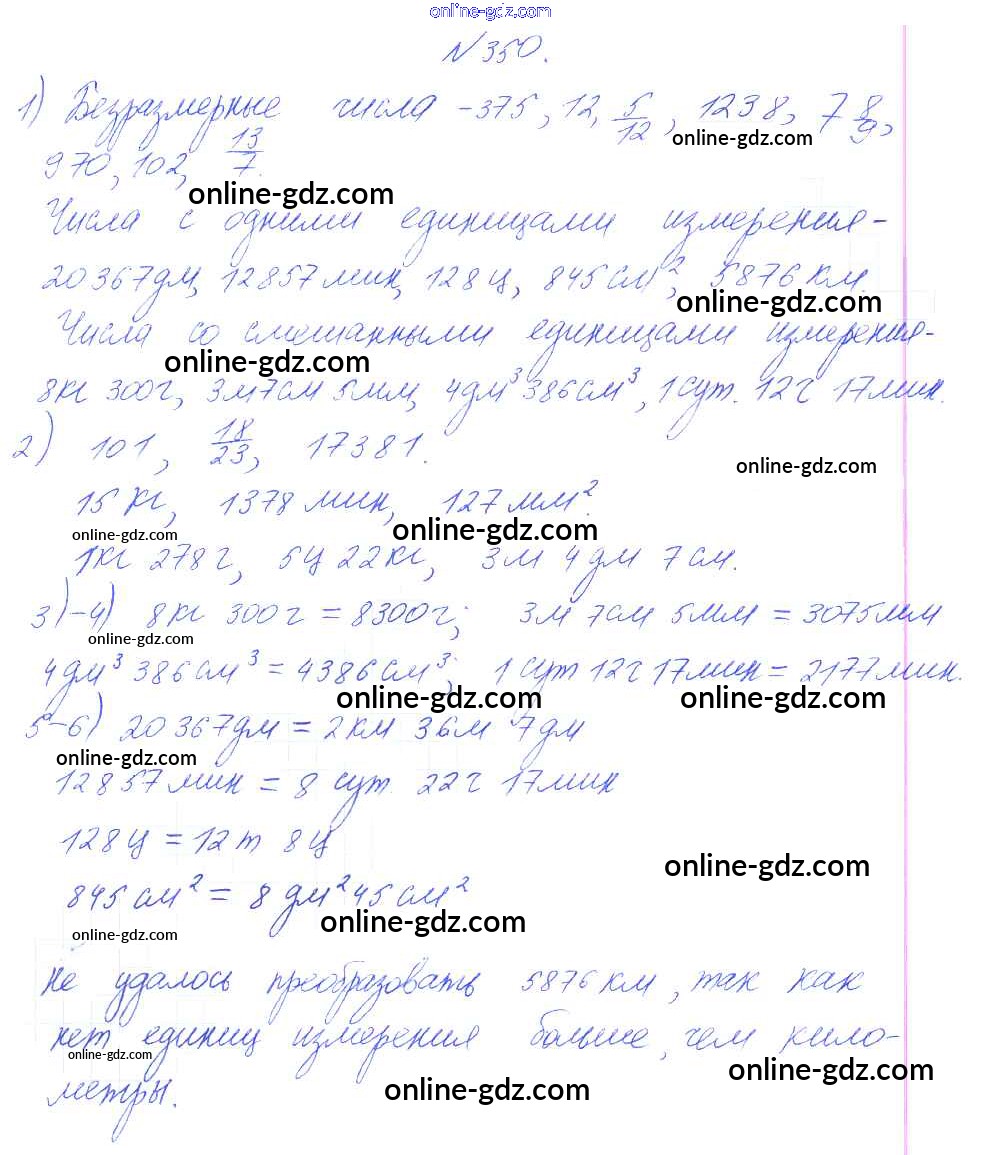 online-gdz.com
№350.
1) Безразмерные числа - 375, 12, 5/12, 1238, 7 8/9,
online-gdz.com
970, 102, 13/7.
online-gdz.com
Числа с одними единицами измерения -
20367дм, 12857мин, 128ц, 845см², 5876км.
online-gdz.com
Числа со смешанными единицами измерения -
online-gdz.com
8кг 300г, 3м7см5мм, 4дм³386см³, 1сут. 12ч 17мин.
2) 101, 18/23, 17381.
online-gdz.com
15кг, 1378мин, 127мм².
online-gdz.com online-gdz.com
1кг 278г, 5ц 22кг, 3м 4дм 7см.
3)-4) 8кг 300г = 8300г; 3м 7см 5мм = 3075мм
online-gdz.com
4дм³ 386см³ = 4386см³; 1сут 12ч 17мин = 2177мин.
online-gdz.com online-gdz.com
5-6) 20367дм = 2км 36м 7дм
online-gdz.com
12857мин = 8 сут. 22ч 17мин
128ц = 12т 8ц
online-gdz.com
845см² = 8дм²45см²
online-gdz.com online-gdz.com
Не удалось преобразовать 5876км, так как
нет единиц измерения больше, чем кило-
online-gdz.com online-gdz.com
метры.
online-gdz.com